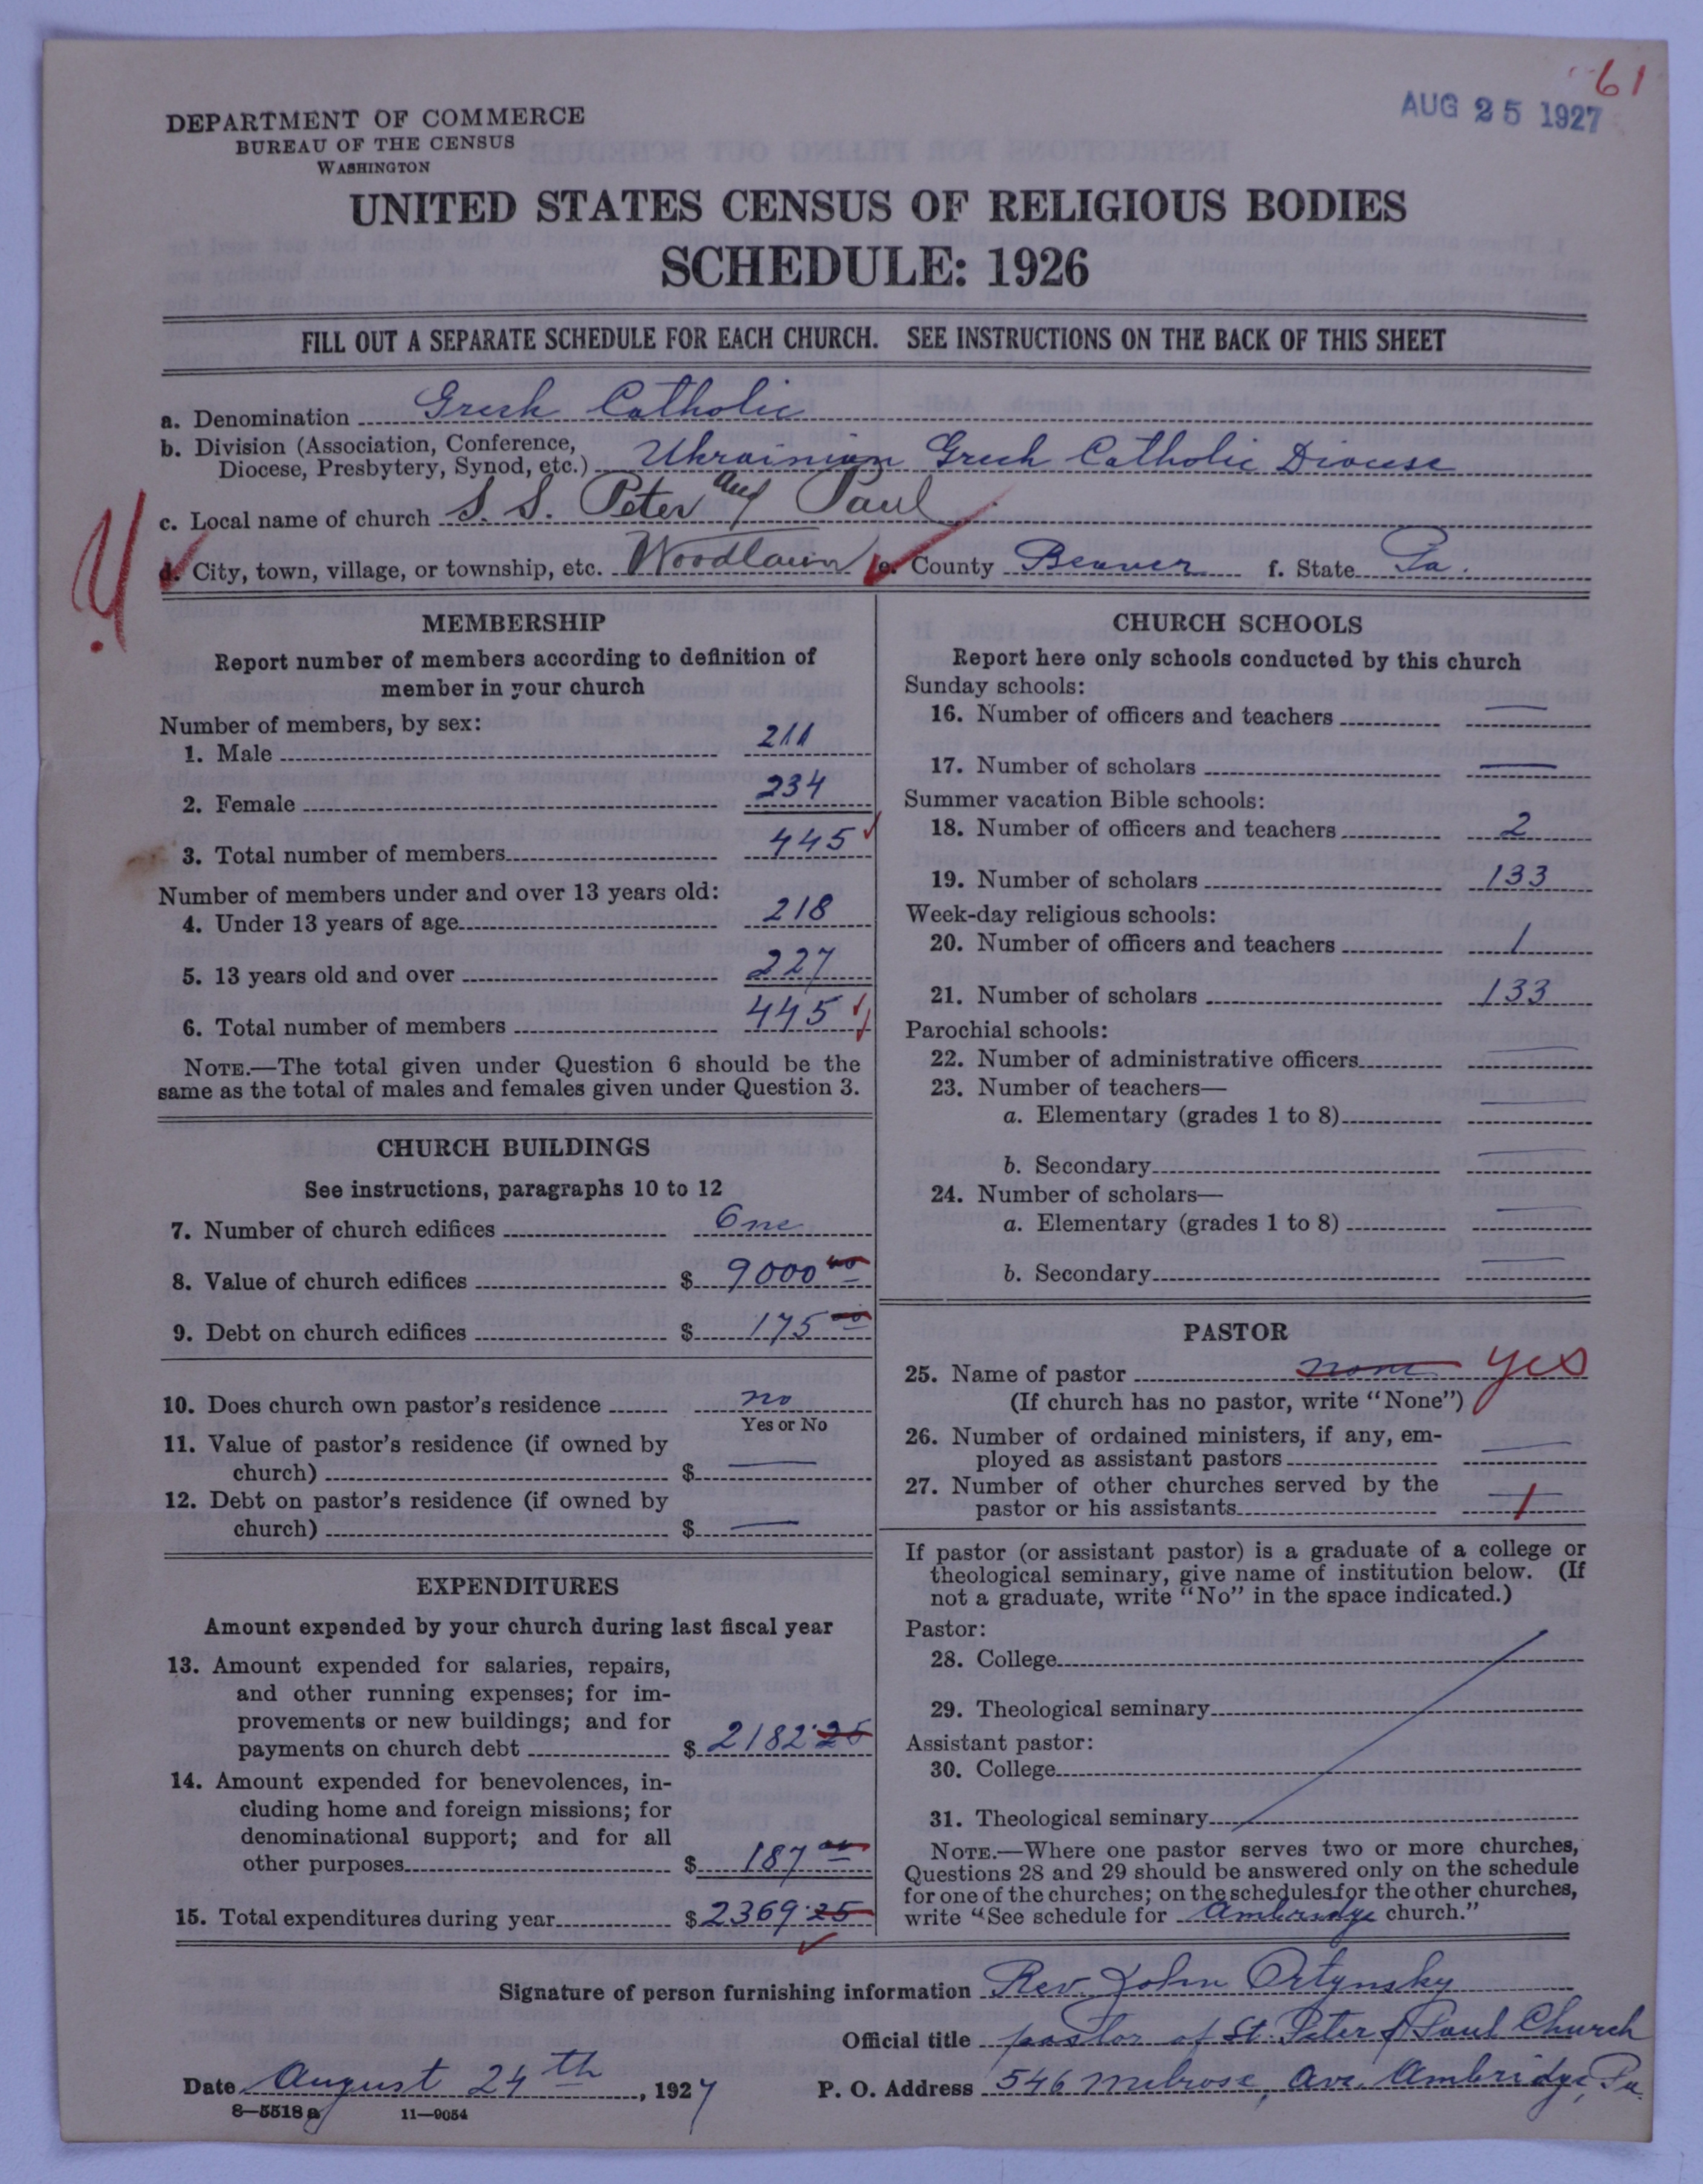 61
AUG 25 1927
DEPARTMENT OF COMMERCE
BUREAU OF THE CENSUS
WASHINGTON
UNITED STATES CENSUS OF RELIGIOUS BODIES
SCHEDULE: 1926
FILL OUT A SEPARATE SCHEDULE FOR EACH CHURCH. SEE INSTRUCTIONS ON THE BACK OF THIS SHEET
a. Denomination Greek Catholic
b. Division (Association, Conference,
Diocese, Presbytery, Synod, etc.) Ukrainian Greek Catholic Diocese
c. Local name of church S. S. Peter and Paul
d. City, town, village, or township, etc. Woodlawn e. County Beaver f. State Pa.
MEMBERSHIP
Report number of members according to definition of
member in your church
Number of members, by sex:
1. Male 211
2. Female 234
3. Total number of members 445
Number of members under and over 13 years old:
4. Under 13 years of age 218
5. 13 years old and over 227
6. Total number of members 445
NOTE.—The total given under Question 6 should be the
same as the total of males and females given under Question 3.
CHURCH BUILDINGS
See instructions, paragraphs 10 to 12
7. Number of church edifices One
8. Value of church edifices $ 9000 00
9. Debt on church edifices $ 175 00
10. Does church own pastor's residence no
Yes or No
11. Value of pastor's residence (if owned by
church) $ —
12. Debt on pastor's residence (if owned by
church) $ —
EXPENDITURES
Amount expended by your church during last fiscal year
13. Amount expended for salaries, repairs,
and other running expenses; for im-
provements or new buildings; and for
payments on church debt $ 2182.25
14. Amount expended for benevolences, in-
cluding home and foreign missions; for
denominational support; and for all
other purposes $ 187 00
15. Total expenditures during year $ 2369.25
CHURCH SCHOOLS
Report here only schools conducted by this church
Sunday schools:
16. Number of officers and teachers —
17. Number of scholars —
Summer vacation Bible schools:
18. Number of officers and teachers 2
19. Number of scholars 133
Week-day religious schools:
20. Number of officers and teachers 1
21. Number of scholars 133
Parochial schools:
22. Number of administrative officers —
23. Number of teachers—
a. Elementary (grades 1 to 8) —
b. Secondary —
24. Number of scholars—
a. Elementary (grades 1 to 8) —
b. Secondary —
PASTOR
25. Name of pastor none yes
(If church has no pastor, write "None")
26. Number of ordained ministers, if any, em-
ployed as assistant pastors —
27. Number of other churches served by the
pastor or his assistants 1
If pastor (or assistant pastor) is a graduate of a college or
theological seminary, give name of institution below. (If
not a graduate, write "No" in the space indicated.)
Pastor:
28. College
29. Theological seminary
Assistant pastor:
30. College
31. Theological seminary
NOTE.—Where one pastor serves two or more churches,
Questions 28 and 29 should be answered only on the schedule
for one of the churches; on the schedules for the other churches,
write "See schedule for Ambridge church."
Signature of person furnishing information Rev. John Ortynsky
Official title pastor of St. Peter & Paul Church
Date August 24th, 1927 P. O. Address 546 Melrose, Ave. Ambridge, Pa.
8—5518 a 11—9054